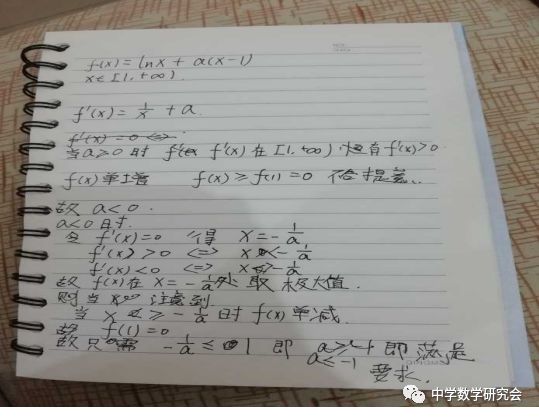 f(x) = lnx + a(x-1)
x∈[1,+∞).
f'(x) = 1/x + a.
f'(x)=0 <=>
当a≥0时 f'(x)在[1,+∞)恒有f'(x)>0
f(x)单增 f(x)≥f(1)=0 不合题意.
故 a<0.
a<0时.
令 f'(x)=0 得 x=-1/a
f'(x)>0 <=> x<-1/a
f'(x)<0 <=> x>-1/a
故 f(x)在x=-1/a处取极大值.
则当 注意到
当 x≥-1/a时f(x)单减.
故 f(1)=0
故只需 -1/a≤1 即 a≤-1 即满足
要求.
中学数学研究会